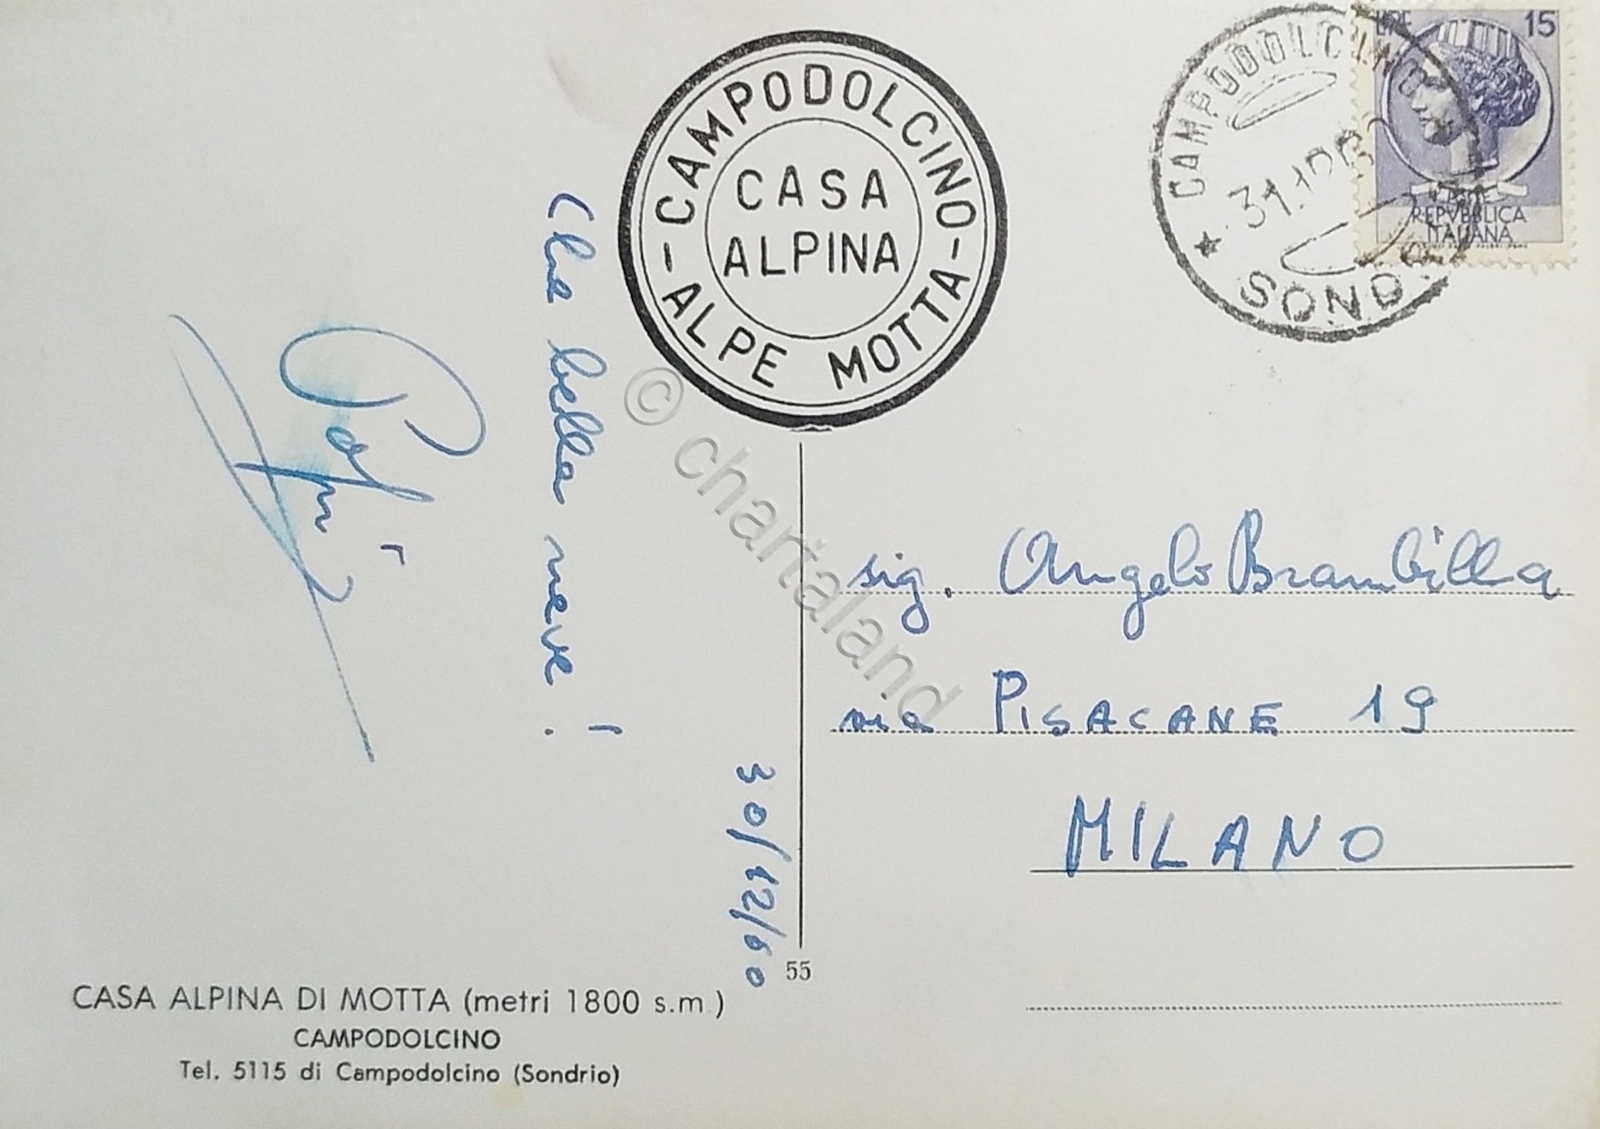 CAMPODOLCINO
CASA
ALPINA
ALPE MOTTA
CAMPODOLCINO
SOND
LIRE 15
POSTE
REPVBBLICA
ITALIANA
Che bella neve!
30/12/60
sig. Angelo Brambilla
via PISACANE 19
MILANO
55
CASA ALPINA DI MOTTA (metri 1800 s.m.)
CAMPODOLCINO
Tel. 5115 di Campodolcino (Sondrio)
© chartaland